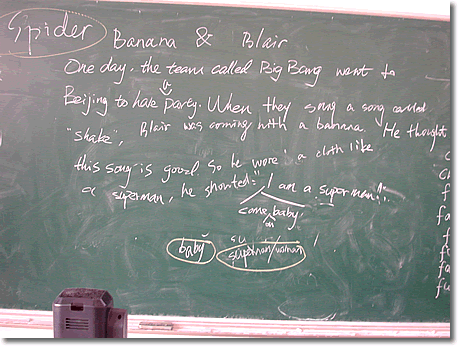 Spider Banana & Blair
One day, the team called Big Bang went to
Beijing to have a party. When they sang a song called
"shake", Blair was coming with a banana. He thought
this song is good so he wore a cloth like
a superman, he shouted: "I am a superman!"
come baby
on
baby su
superman/woman
c
f
fa
f
f
fa
fu